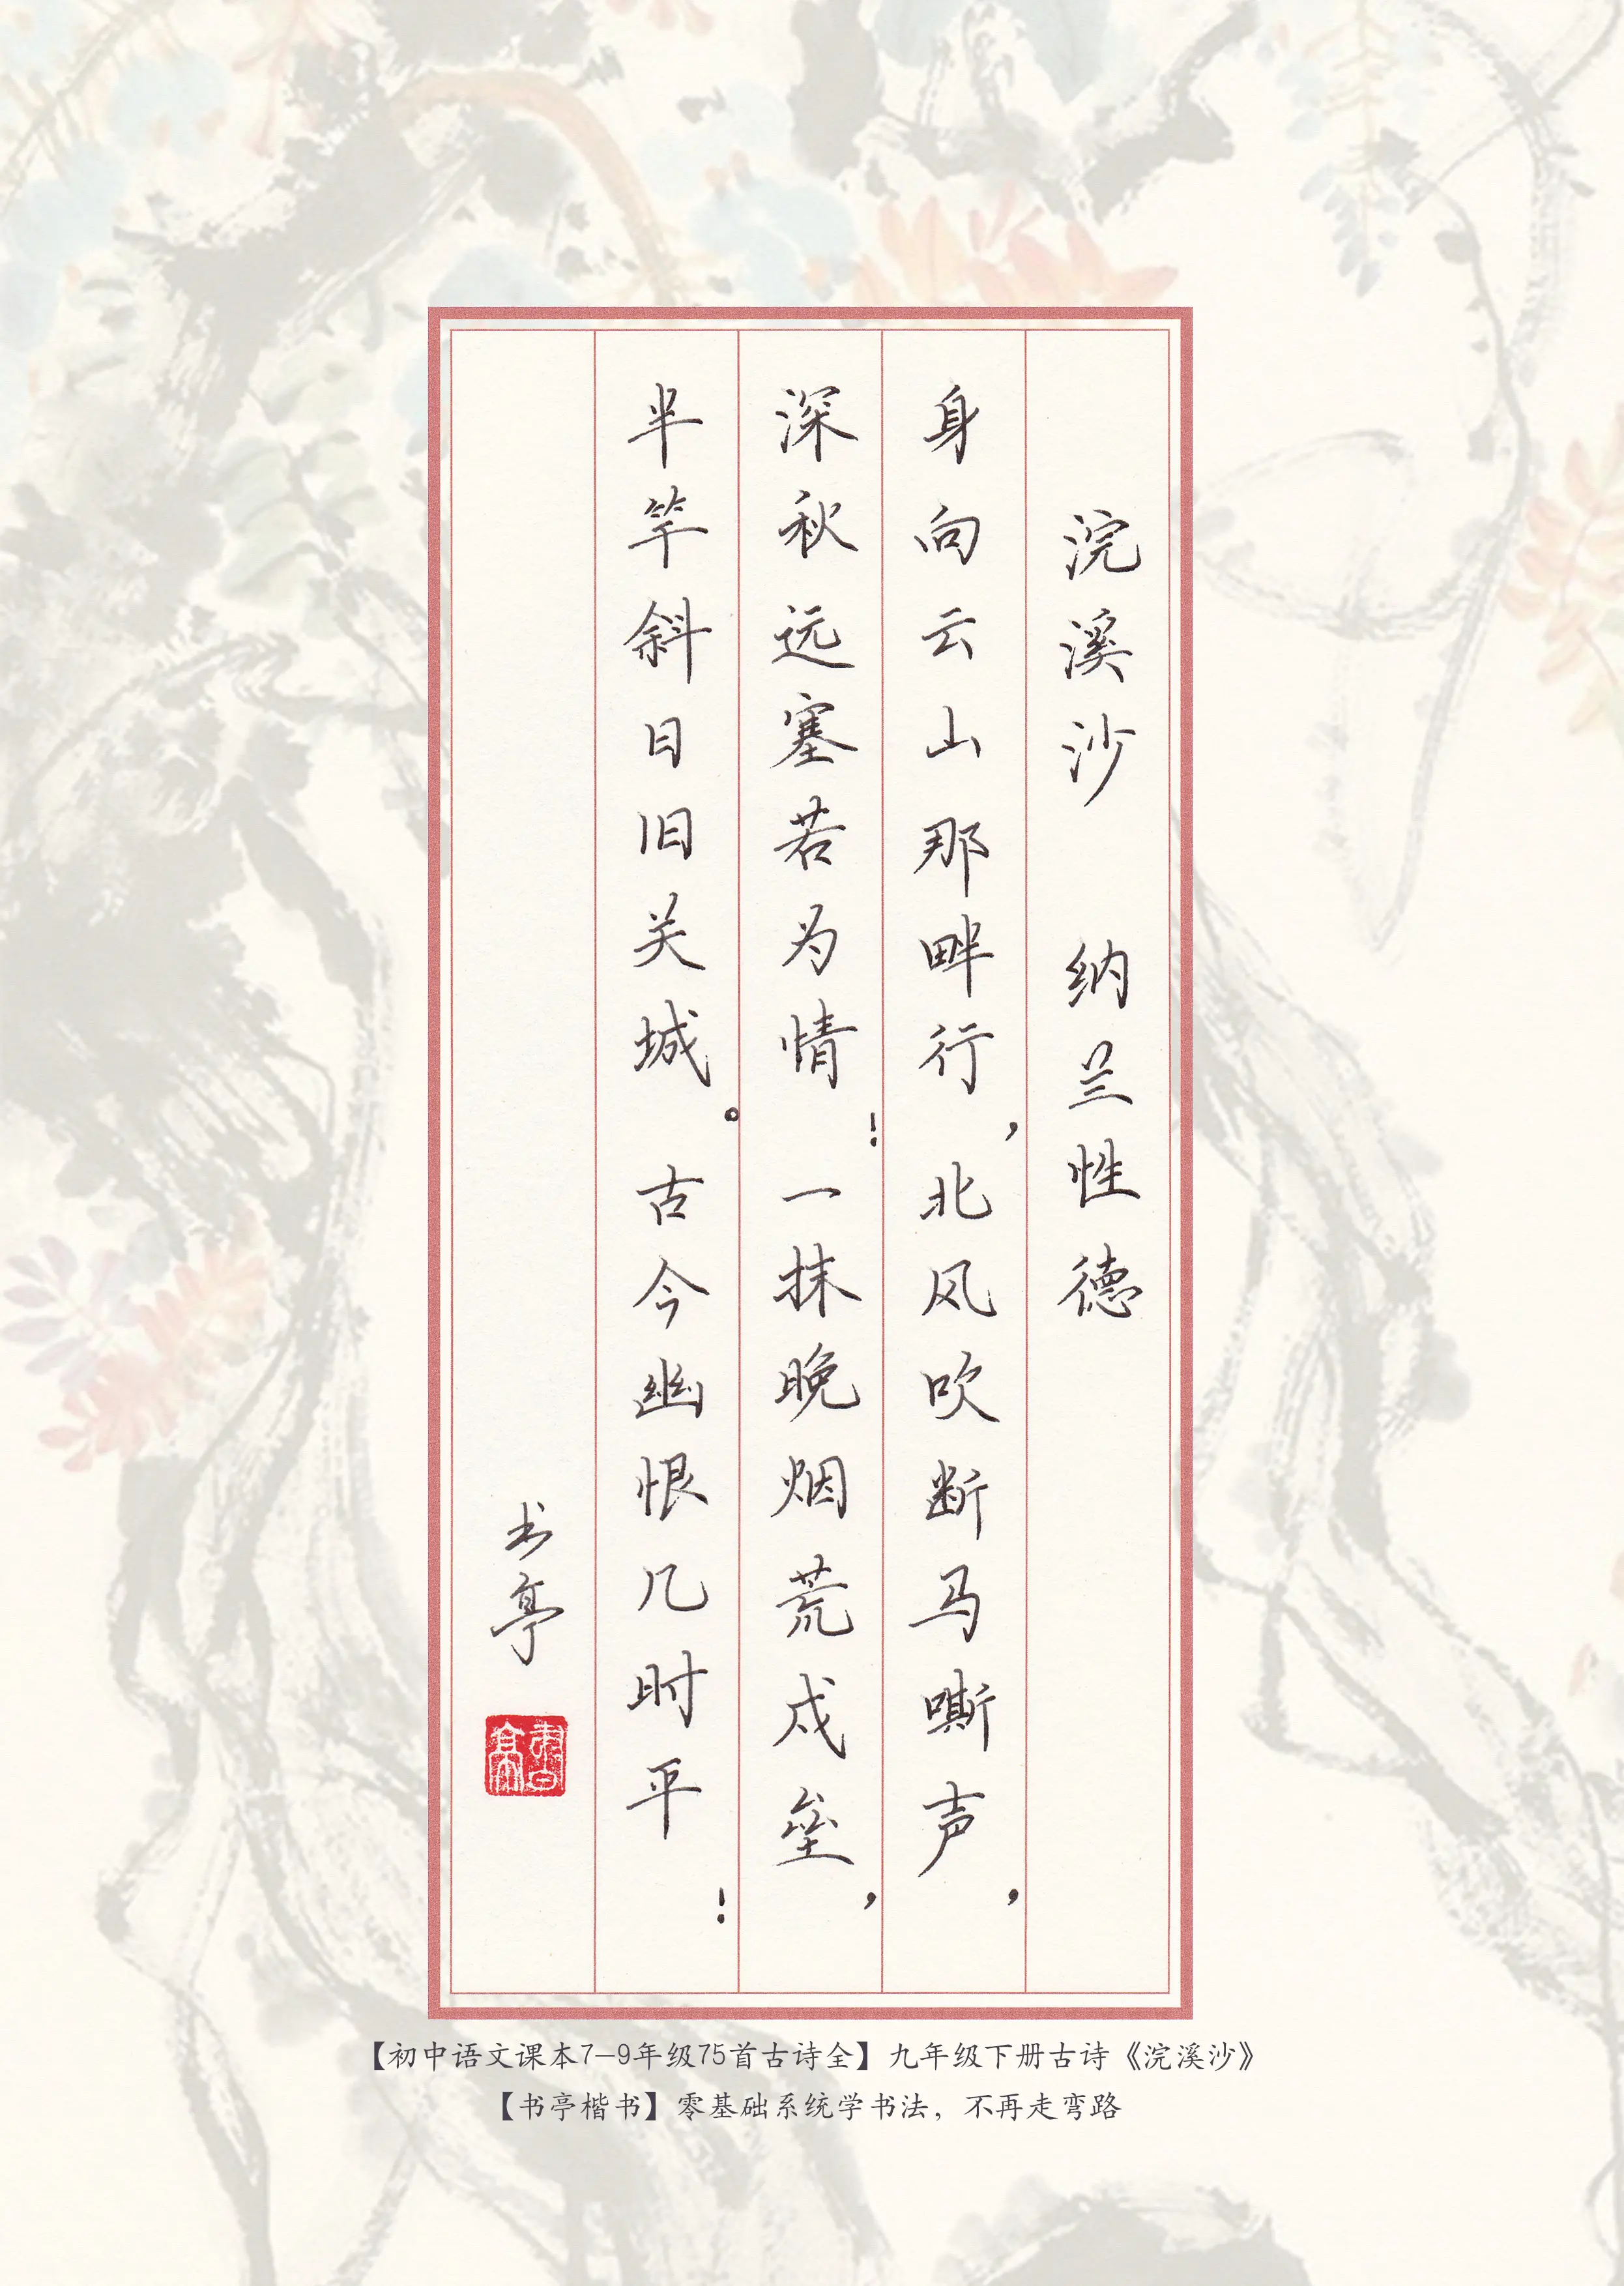 浣溪沙 纳兰性德
身向云山那畔行，北风吹断马嘶声，
深秋远塞若为情！一抹晚烟荒戍垒，
半竿斜日旧关城。古今幽恨几时平！
书亭
書亭
【初中语文课本7-9年级75首古诗全】九年级下册古诗《浣溪沙》
【书亭楷书】零基础系统学书法，不再走弯路